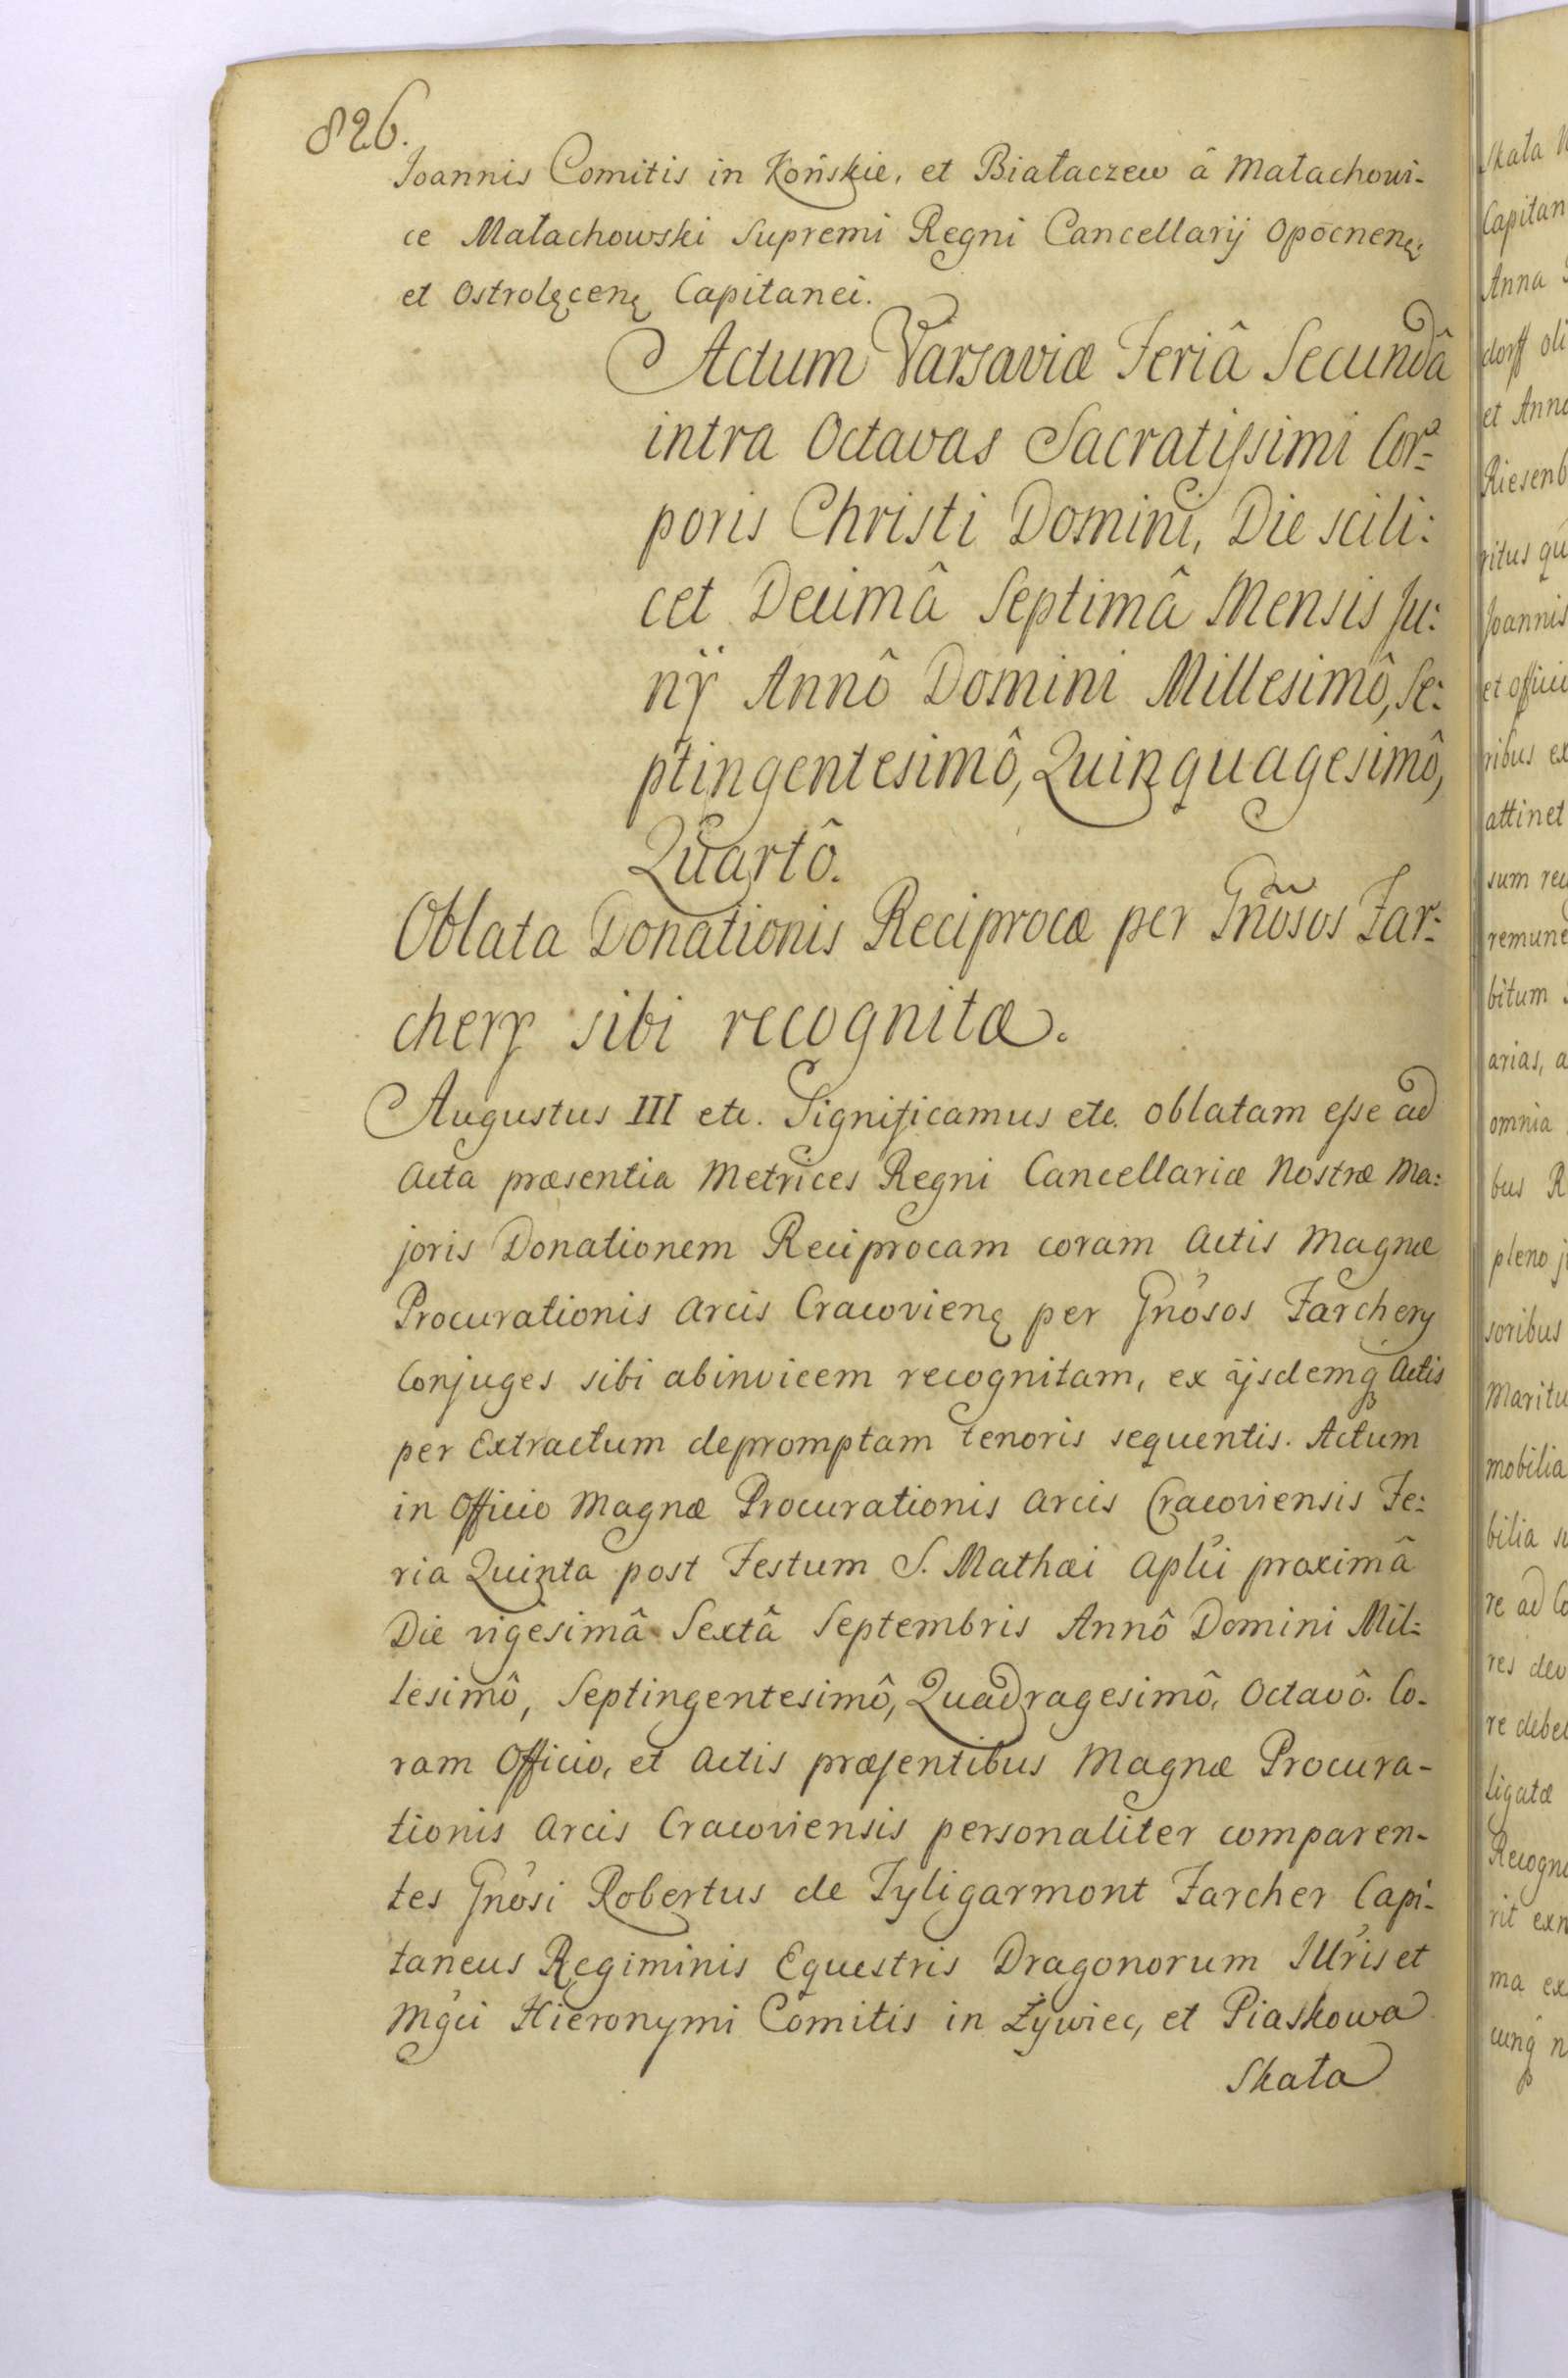 826.
Joannis Comitis in Końskie, et Białaczew â Małachowi-
ce Małachowski Supremi Regni Cancellarij Opocneną:
et Ostrolęcenę Capitanei.
Actum Varsaviæ Feriâ Secundâ
intra Octavas Sacratissimi Cor=
poris Christi Domini, Die scili:
cet Decimâ Septimâ Mensis Ju:
nÿ Annô Domini Millesimô, Se:
ptingentesimô, Quinquagesimô,
Quartô.
Oblata Donationis Reciprocæ per Gnõsos Far:
chery sibi recognitæ.
Augustus III etc. Significamus etc. oblatam esse ad
Acta præsentia Metrices Regni Cancellariæ Nostræ Ma:
joris Donationem Reciprocam coram Actis Magnæ
Procurationis Arcis Cracovienę per Gnosos Farchery
Conjuges sibi abinvicem recognitam, ex ijsdemq Actis
per Extractum depromptam tenoris sequentis. Actum
in Officio Magnæ Procurationis Arcis Cracoviensis Fe:
ria Quinta post Festum S. Mathæi Aplii proximâ
Die vigesimâ Sextâ Septembris Annô Domini Mil=
lesimô, Septingentesimô, Quadragesimô, Octavô. Co-
ram Officio, et Actis præsentibus Magnæ Procura-
tionis Arcis Cracoviensis personaliter comparen-
tes Gnosi Robertus de Fyligarmont Farcher Capi-
taneus Regiminis Equestris Dragonorum Illris et
Mgci Hieronymi Comitis in Żywiec, et Piaskowa
Skała
Skała
Capitan
Anna
dorff oli
et Anna
Riesenb
ritus qu
Joannis
et offici
ribus ex
attinet
sum rec
remune
bitum
arias, a
omnia
bus R
pleno j
soribus
Maritu
mobilia
bilia su
re ad Co
res dev
re debe
ligatæ
Recogno
rit exn
ma ex
cunq n